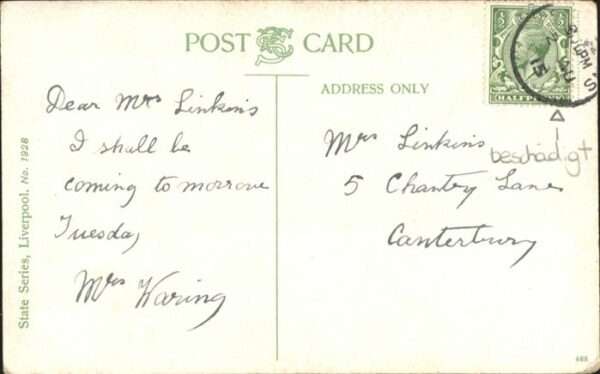 POST CARD
ADDRESS ONLY
Dear Mrs Linkins
I shall be
coming to morrow
Tuesday
Mrs Waring
Mrs Linkins
5 Chantry Lane
Canterbury
HALFPENNY
beschädigt
State Series, Liverpool. No. 1928